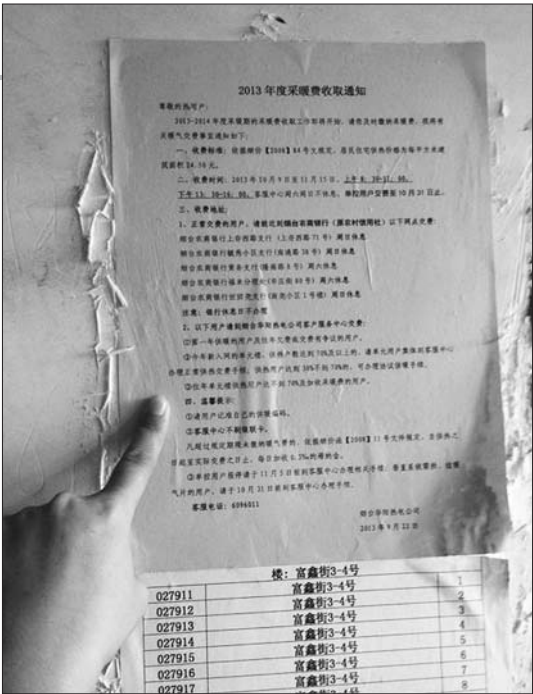 2013 年度采暖费收取通知
尊敬的热可户:
2013-2014 年度采暖期的采暖费收取工作即将开始, 请您及时缴纳采暖费, 现将有
关暖气交费事宜通知如下:
一、收费标准: 依据烟价【2008】84 号文规定, 居民住宅供热价格为每平方米建
筑面积 24.50 元。
二、收费时间: 2013 年 10 月 9 日至 11 月 15 日, 上午 8: 30-11: 00,
下午 13: 30-16: 00, 客服中心周六周日不休息, 单位用户交费至 10 月 31 日止。
三、收费地址:
1、正常交费的用户, 请就近到烟台农商银行 (原农村信用社) 以下网点交费:
烟台农商银行上夼西路支行 (上夼西路 71 号) 周日休息
烟台农商银行毓秀小区支行(南通路 38 号) 周日休息
烟台农商银行 支行( 路 8 号) 周六休息
烟台农商银行福来分理处( 80 号) 周六休息
烟台农商银行世回尧支行(南尧小区 1 号楼) 周日休息
注意: 银行休息日不办理
2、以下用户请到烟台华阳热电公司客户服务中心交费:
①第一年供暖的用户及往年欠费或交费有争议的用户。
②今年新入网的单元楼, 供热户数达到 70%及以上的, 请单元用户集体到客服中心
办理正常供热交费手续。供热用户达到 30%不到 70%的, 可办理协议供暖手续。
③往年单元楼供热可户达不到 70%及加收采暖费的用户。
四、温馨提示:
①请用户记准自己的供暖编码。
②客服中心不刷银联卡。
凡超过规定期限未缴纳暖气费的, 依据烟价函【2008】11 号文件规定, 自供热之
日起至实际交费之日止, 每日加收 0.2%的滞纳金。
③单位用户报停请于 11 月 5 日前到客服中心办理相关手续, 垂直系统需拆、 暖
气片的用户, 请于 10 月 31 日前到客服中心办理手续。
客服电话: 6096011
烟台华阳热电公司
2013 年 9 月 22 日
楼: 富鑫街3-4号
027911 富鑫街3-4号 1
027912 富鑫街3-4号 2
027913 富鑫街3-4号 3
027914 富鑫街3-4号 4
027915 富鑫街3-4号 5
027916 富鑫街3-4号 6
027917 富鑫街3-4号 7
8